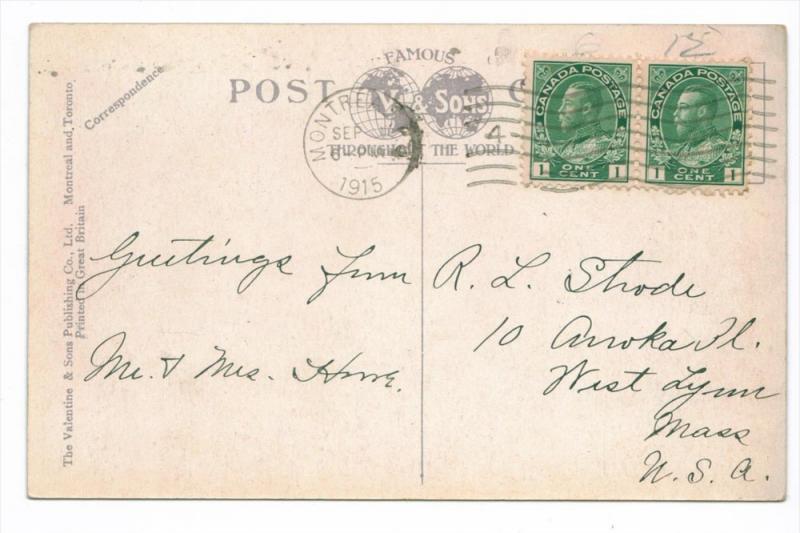 FAMOUS
POST
V. & Sons
THROUGHOUT THE WORLD
MONTREAL
SEP
4
6 - PM
1915
CANADA POSTAGE
1 ONE CENT 1
CANADA POSTAGE
1 ONE CENT 1
Correspondence
The Valentine & Sons Publishing Co., Ltd. Montreal and Toronto
Printed in Great Britain
Greetings from
Mr. & Mrs. Howe.
R. L. Strode
10 Anoka Pl.
West Lynn
Mass
U. S. A.